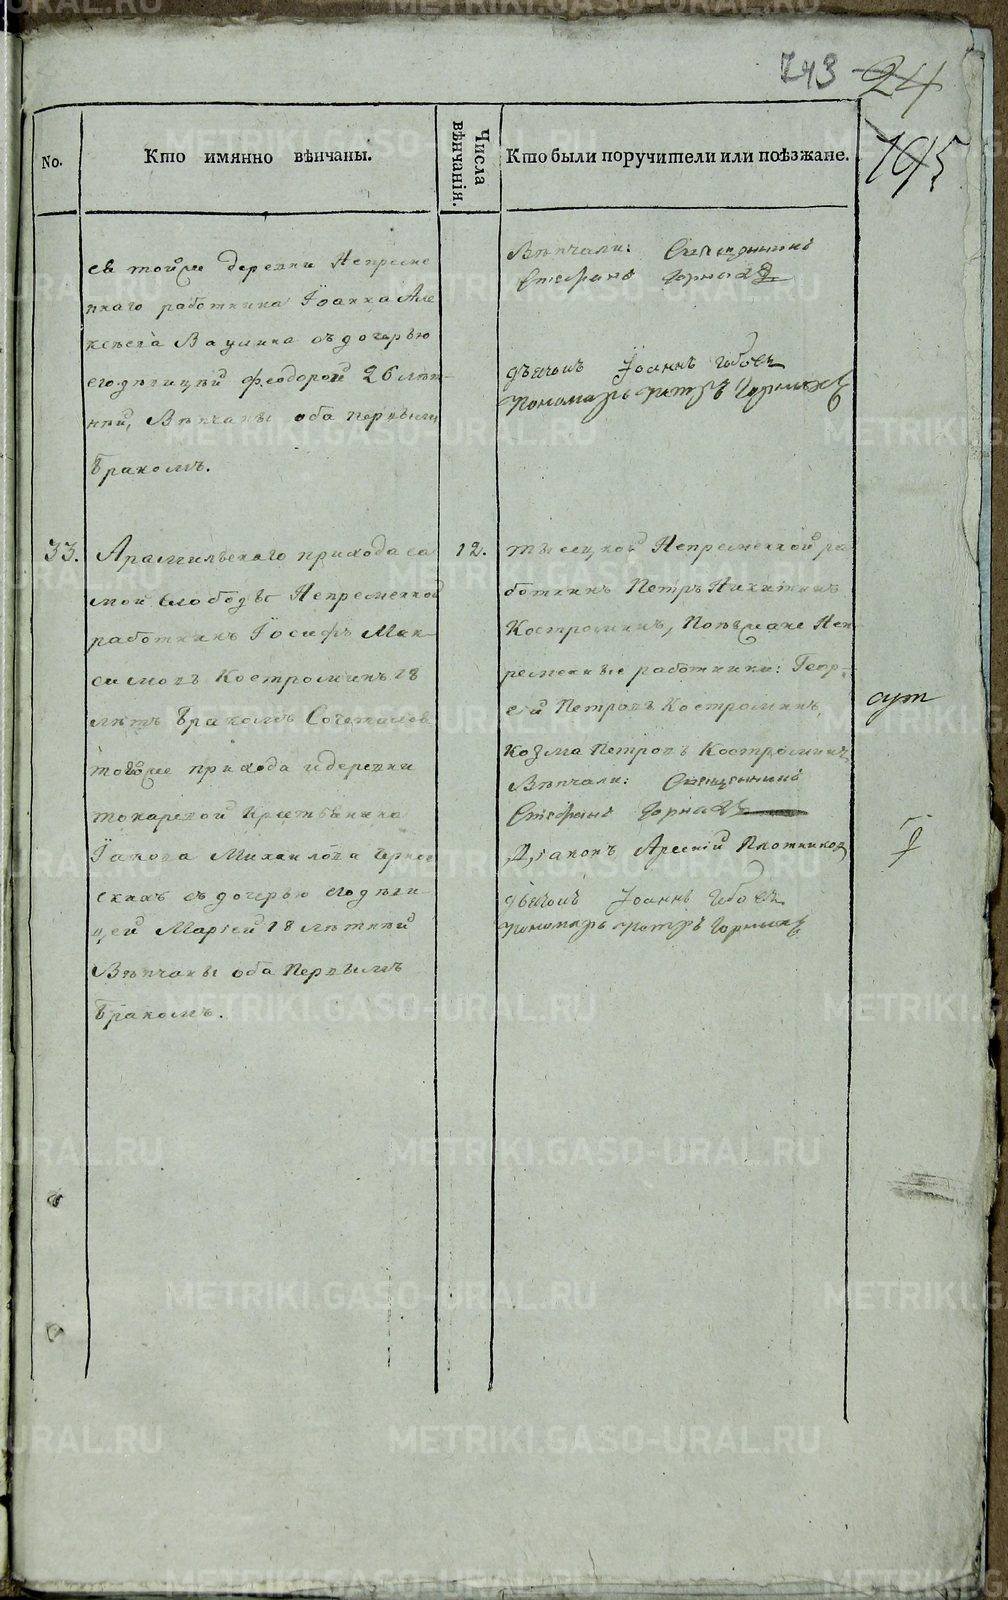 743 24
195
No.
Кто имянно вѣнчаны.
Числа вѣнчанія.
Кто были поручители или поѣзжане.
тойже деревни Непреме
ннаго работника Їоанна Але
ксѣева Ваулина съ дочерью
его дѣвицей Феодорой 26 лѣт-
ней, Вѣнчаны оба первымъ
бракомъ.
Вѣнчали: Священникъ
Стефанъ
дьячокъ Їоаннъ
Пономарь Петръ
33.
Арамильскаго прихода са
мой слободы Непременной
работникъ Їосифъ Мак-
симовъ Костроминъ 18
лѣтъ бракомъ Сочетался
тогоже прихода и деревни
токаревой Крестьянина
Їакова Михайлова
съ дочерью его дѣви-
цей Марїей 18 лѣтней
Вѣнчаны оба первымъ
бракомъ.
12.
тысецкой Непременной ра
ботникъ Петръ Никитинъ
Костроминъ, Поѣзжане Неп
ременные работники: Геор-
гїй Петровъ Костроминъ,
Козма Петровъ Костроминъ
Вѣнчали: Священникъ
Стефанъ
Дїаконъ Арсенїй Плотников
дьячокъ Їоаннъ
Пономарь Петръ
METRIKI.GASO-URAL.RU